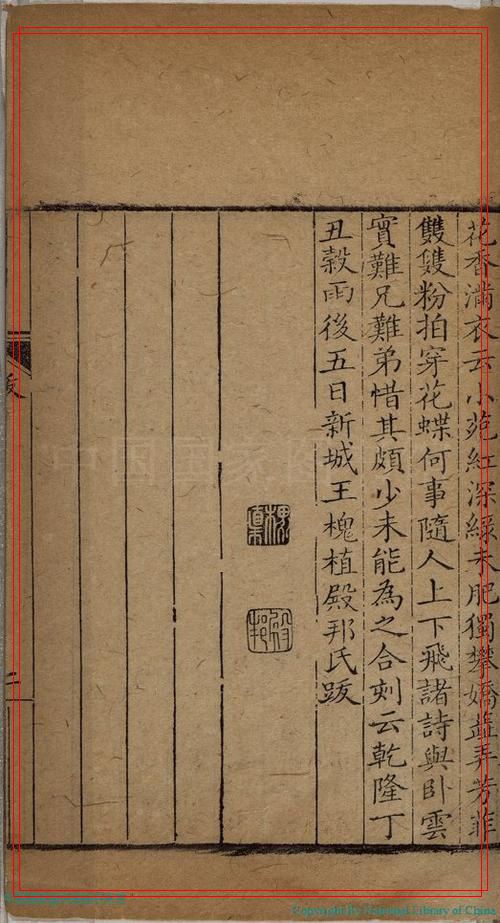 花香滿衣云小苑紅深綠未肥獨攀嬌蕋弄芳菲
雙雙粉拍穿花蝶何事隨人上下飛諸詩與臥雲
實難兄難弟惜其頗少未能為之合刻云乾隆丁
丑榖雨後五日新城王槐植殿邦氏跋
跋
二
中国国家
Copyright By National Library of China